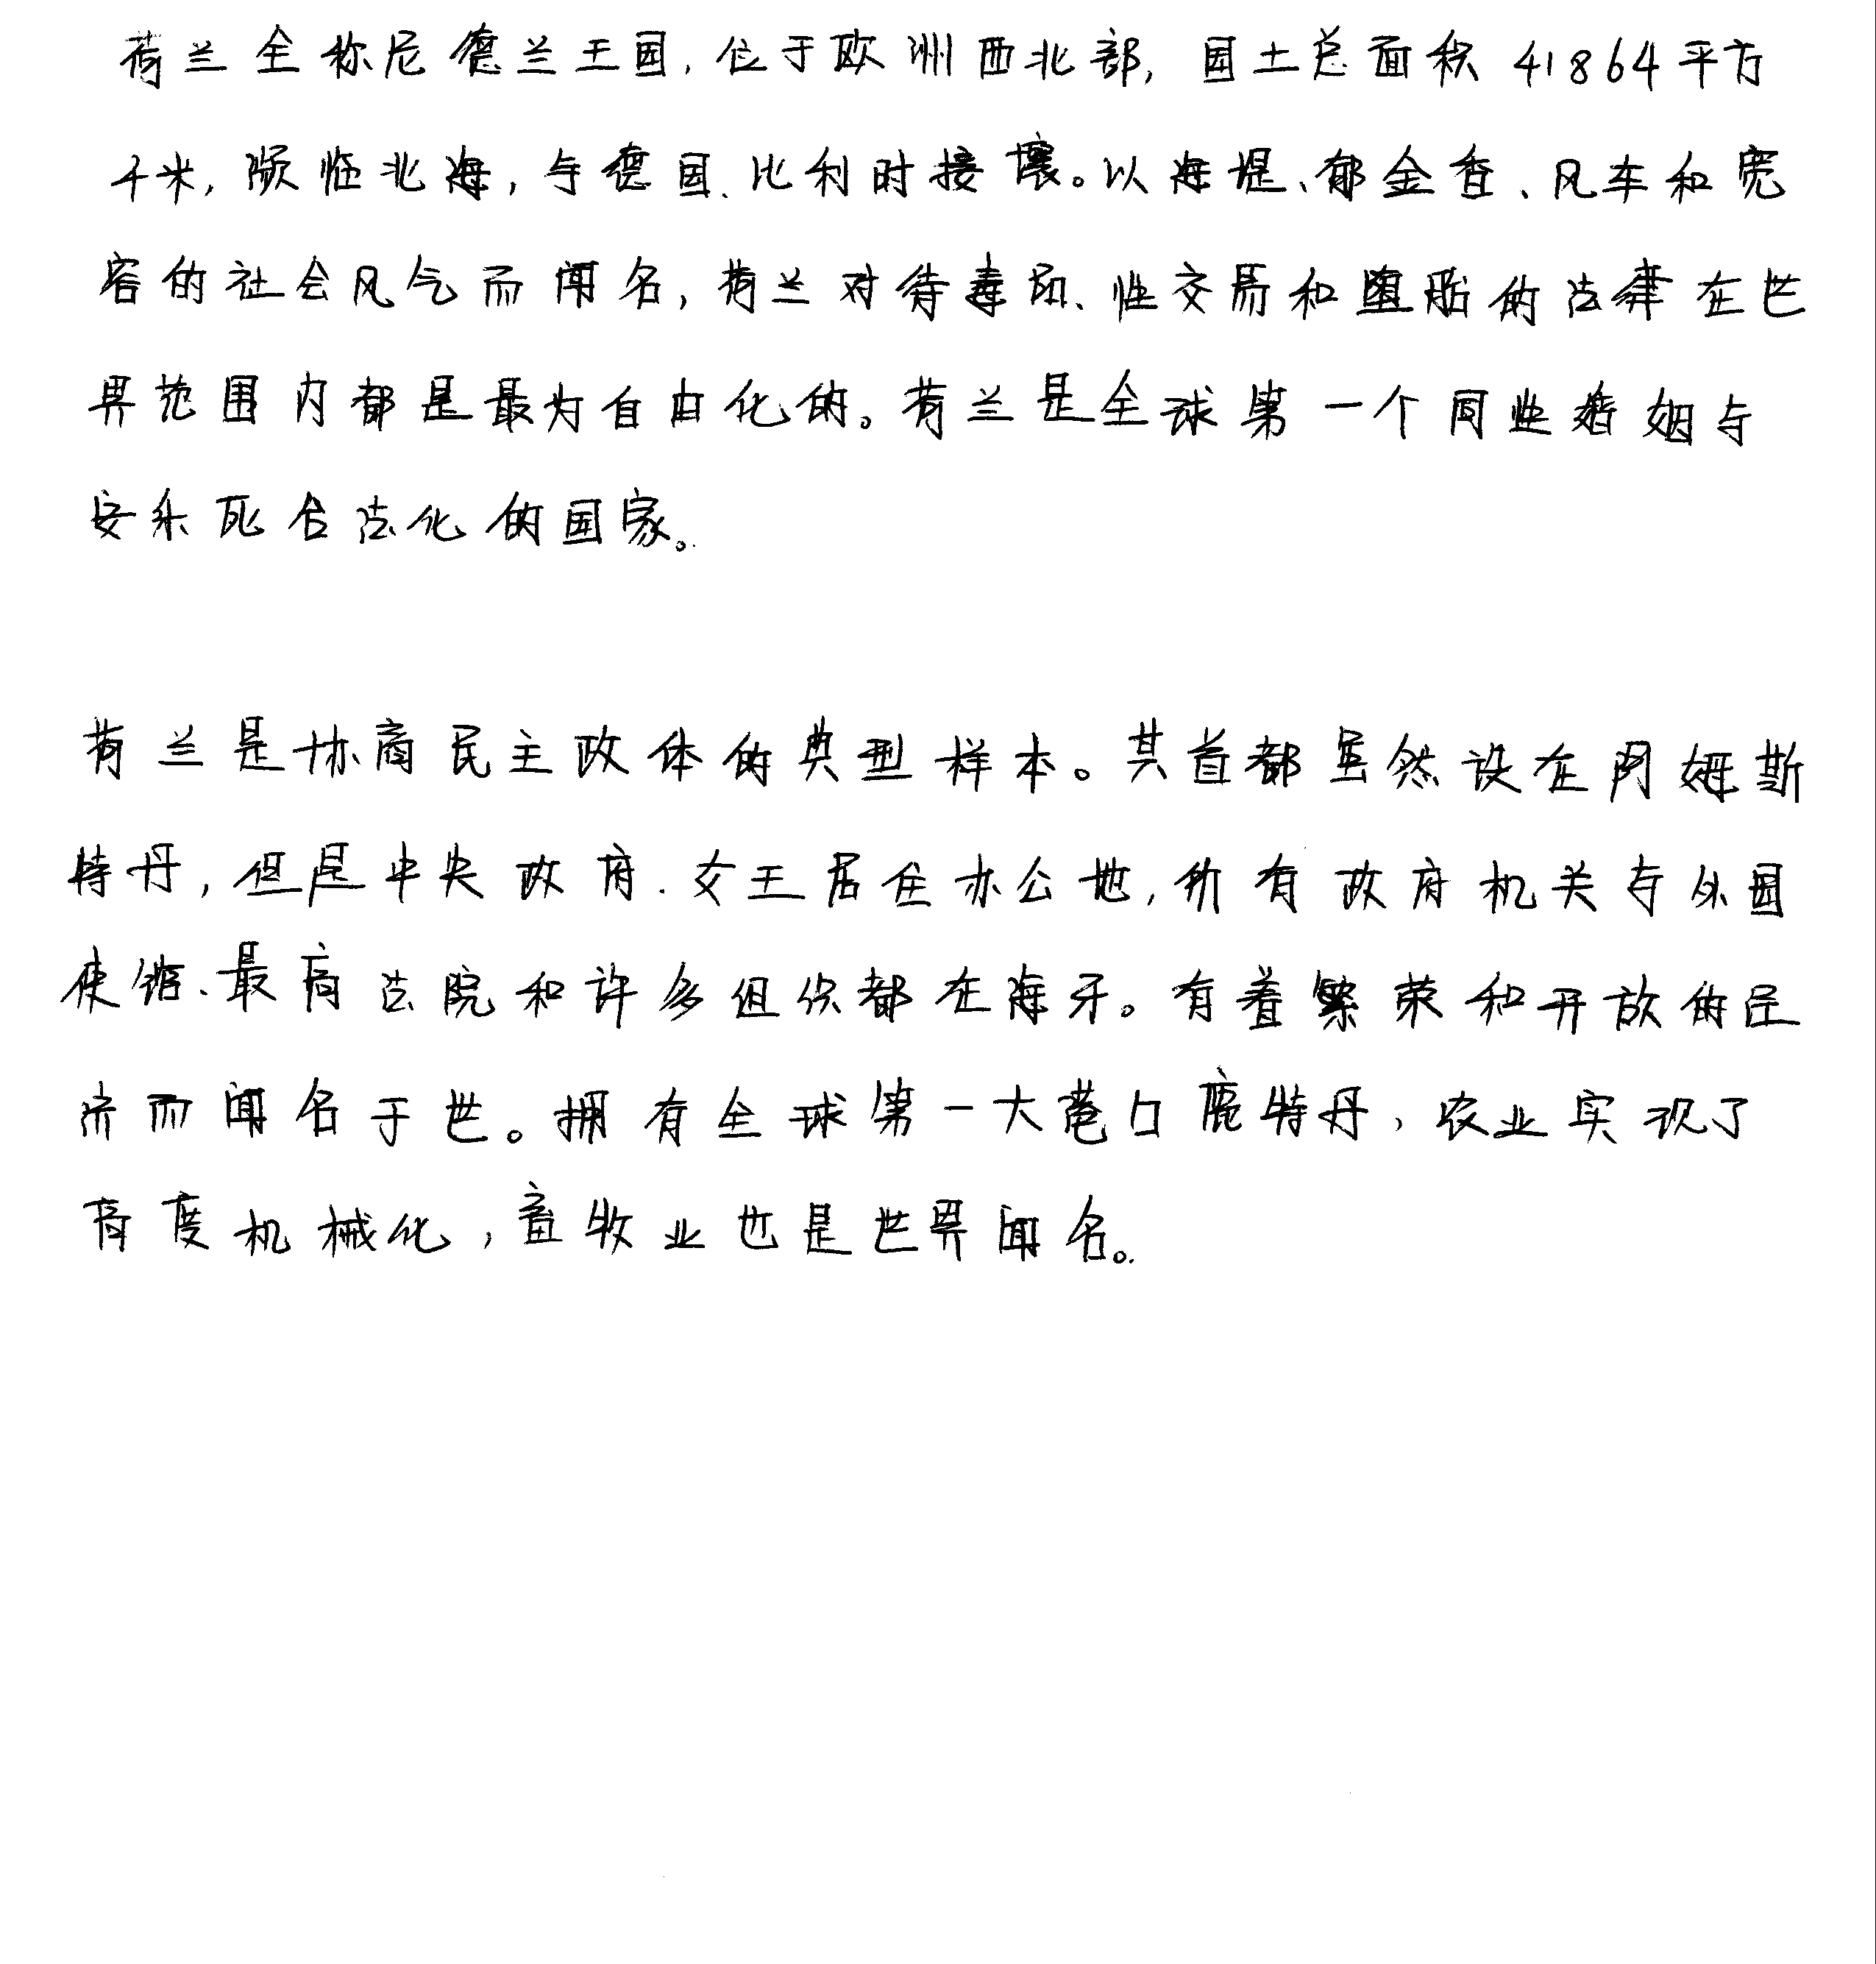 荷兰全称尼德兰王国，位于欧洲西北部，国土总面积41864平方
千米，濒临北海，与德国、比利时接壤。以海堤、郁金香、风车和宽
容的社会风气而闻名，荷兰对待毒品、性交易和堕胎的法律在世
界范围内都是最为自由化的。荷兰是全球第一个同性婚姻与
安乐死合法化的国家。
荷兰是协商民主政体的典型样本。其首都虽然设在阿姆斯
特丹，但是中央政府、女王居住办公地，所有政府机关与外国
使馆、最高法院和许多组织都在海牙。有着繁荣和开放的经
济而闻名于世。拥有全球第一大港口鹿特丹，农业实现了
高度机械化，畜牧业也是世界闻名。